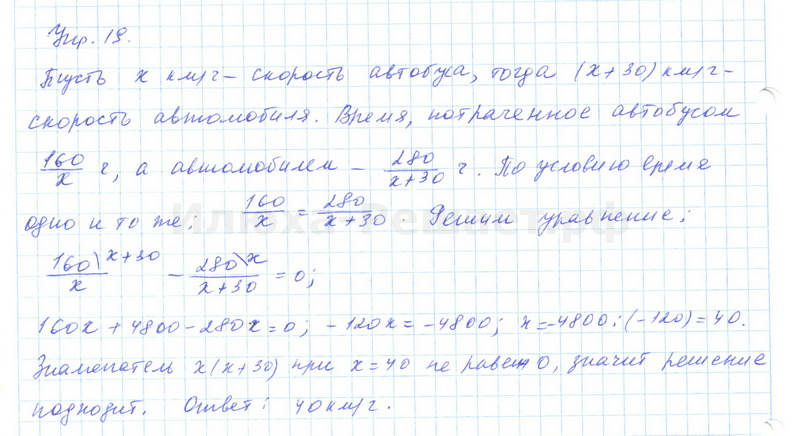 Упр. 19.
Пусть x км/ч – скорость автобуса, тогда (x+30) км/ч –
скорость автомобиля. Время, потраченное автобусом
160/x ч, а автомобилем – 280/(x+30) ч. По условию время
одно и то же; 160/x = 280/(x+30). Решим уравнение;
160\x+30 / x – 280\x / x+30 = 0;
160x + 4800 – 280x = 0; –120x = –4800; x = –4800 : (–120) = 40.
Знаменатель x(x+30) при x = 40 не равен 0, значит решение
подходит. Ответ: 40 км/ч.